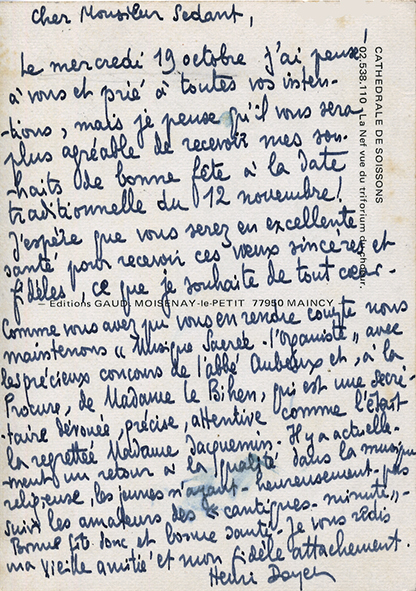 Cher Monsieur Sedant,
Le mercredi 19 octobre j'ai pensé
à vous et prié à toutes vos inten-
-tions, mais je pense qu'il vous sera
plus agréable de recevoir mes sou-
-haits de bonne fête à la date
traditionnelle du 12 novembre!
J'espère que vous serez en excellente
santé pour recevoir ces vœux sincères et
fidèles, ce que je souhaite de tout cœur.
Comme vous avez pu vous en rendre compte nous
maintenons « Musique Sacrée - l'Organiste » avec
les précieux concours de l'abbé Aubeux et, à la
Procure, de Madame le Bihen, qui est une secré-
-taire dévouée, précise, attentive comme l'était
la regrettée Madame Jacquemin. Il y a actuelle-
-ment un retour à la qualité dans la musique
religieuse, les jeunes n'ayant - heureusement - pas
suivi les amateurs des « cantiques-minute ».-
Bonne fête donc et bonne santé. Je vous redis
ma vieille amitié et mon fidèle attachement.
Henri Doyen
CATHEDRALE DE SOISSONS
02.538.110 La Nef vue du triforium du chœur.
Editions GAUD, MOISENAY-le-PETIT 77950 MAINCY